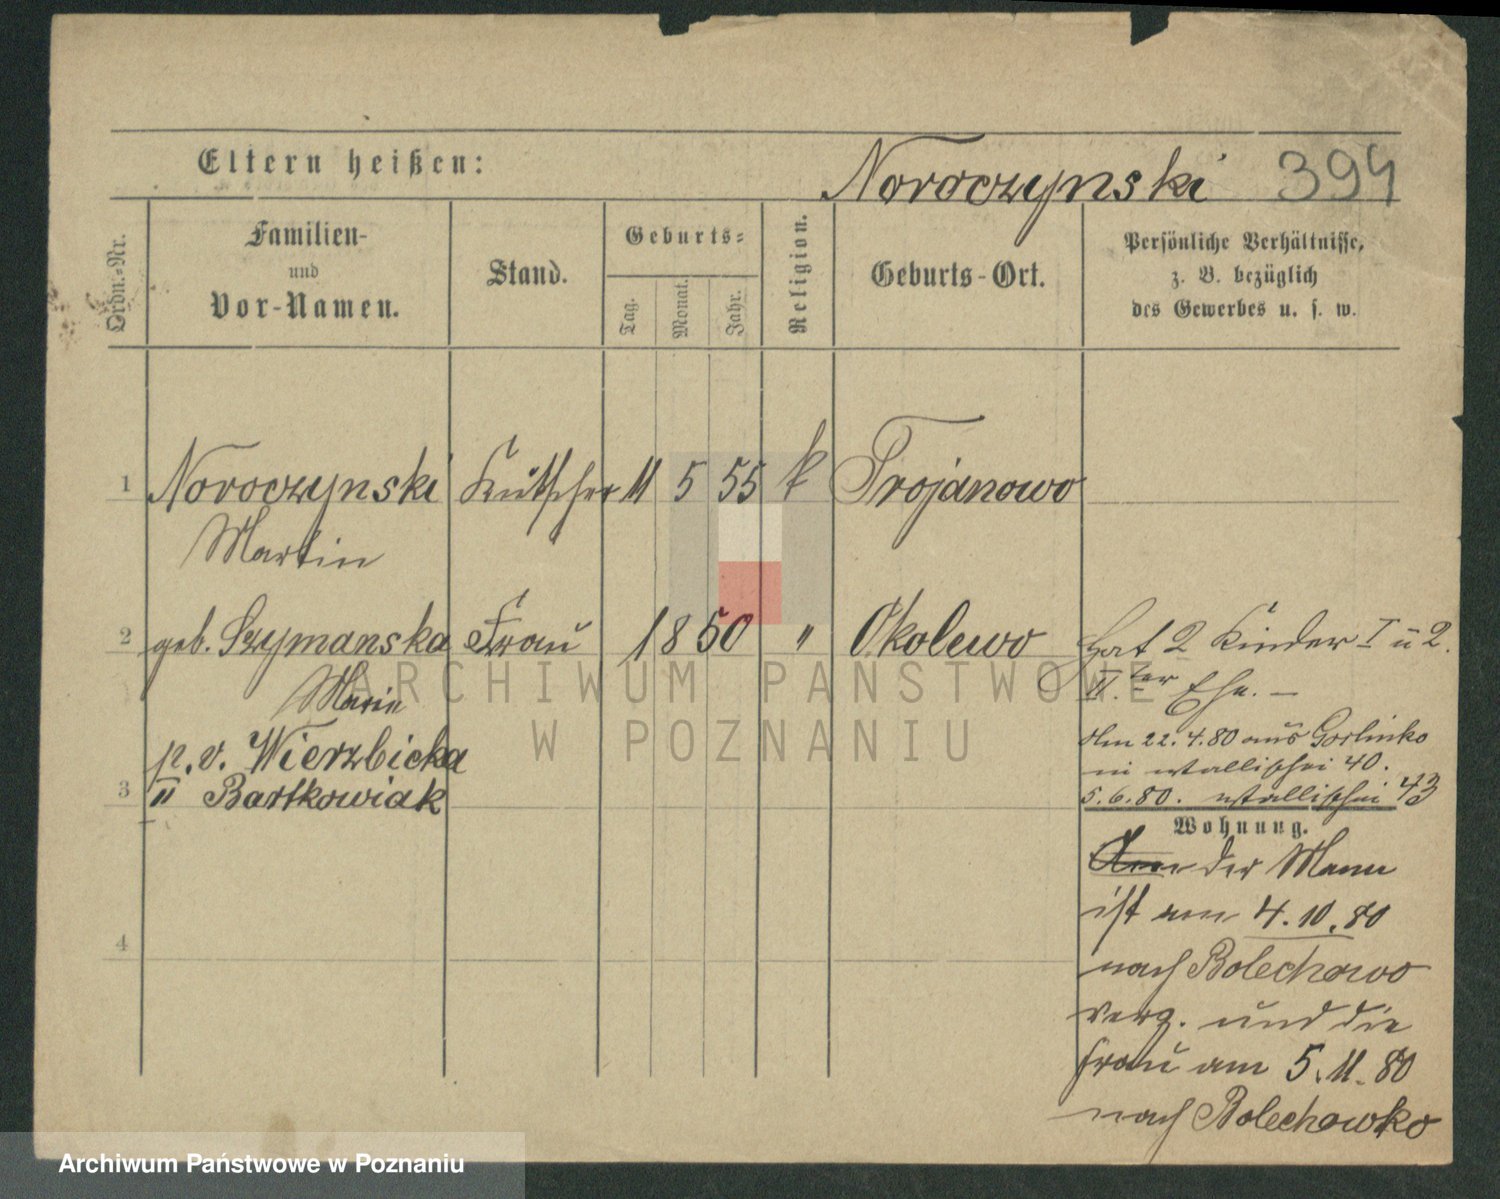 Eltern heißen:
Noroczynski 394
Ordn.-Nr.
Familien-
und
Vor-Namen.
Stand.
Geburts-
Tag.
Monat.
Jahr.
Religion.
Geburts-Ort.
Persönliche Verhältnisse,
z. B. bezüglich
des Gewerbes u. s. w.
1 Noroczynski Kutscher 11 5 55 k Trojanowo
Martin
2 geb. Szymanska Frau 1850 " Okolewo
Marie
p. v. Wierzbicka
3 II Bartkowiak
4
Hat 2 Kinder I u 2.
II. ter Ehe. —
Am 22. 4. 80 aus Goslinko
in Wallischei 40.
5. 6. 80. Wallischei 43
Wohnung.
der Mann
ist am 4. 10. 80
nach Bolechowo
verz. und die
Frau am 5. 11. 80
nach Bolechowko
ARCHIWUM PAŃSTWOWE
W POZNANIU
Archiwum Państwowe w Poznaniu